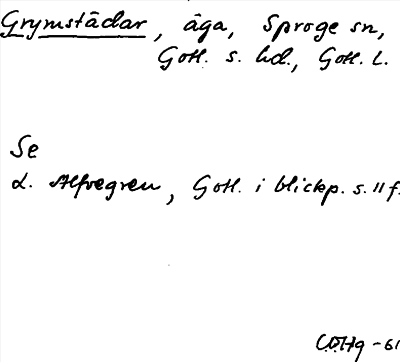 Grymstädar, äga, Sproge sn,
Gotl. s. hd., Gotl. L.
Se
L. Alfvegren, Gotl. i blickp. s. 11 f.
-61